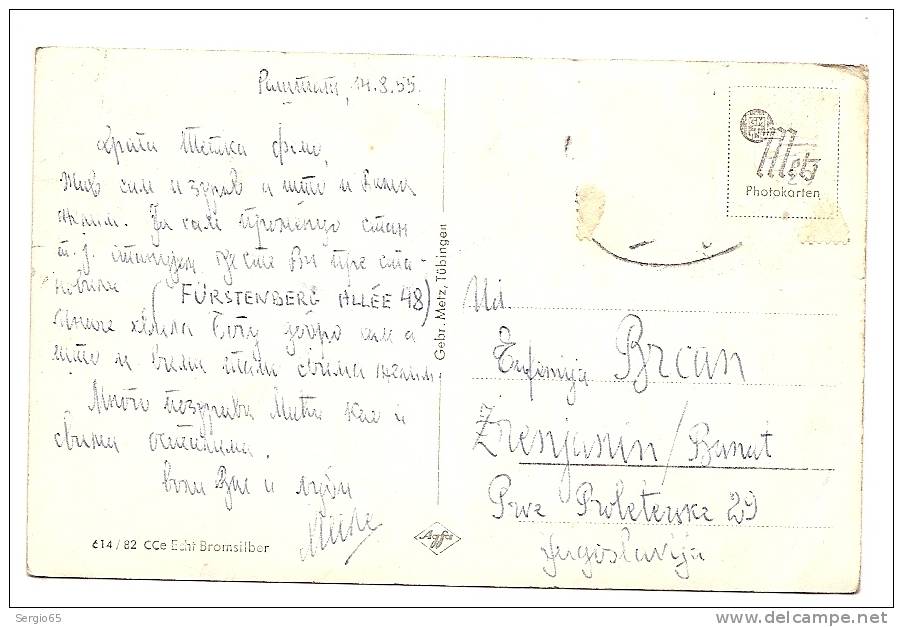 Раштат, 14.8.55.
Драга Тетка Фемо,
жив сам и здрав а што и Вама
желим. Ја сам променуо стан
т.ј. станујем где сте Ви пре ста-
новали (FÜRSTENBERG ALLÉE 48)
Иначе хвала Богу добро сам а
што и Вама свима желим.
Много поздрава Мити као и
свима осталима.
воли Вас и љуби
614/82 CCe Echt Bromsilber
Gebr. Metz, Tübingen
Agfa
Metz
Photokarten
Eufimija Brcan
Zrenjanin / Banat
Prve Proleterske 29
Jugoslavija
Sergio65
www.delcampe.net